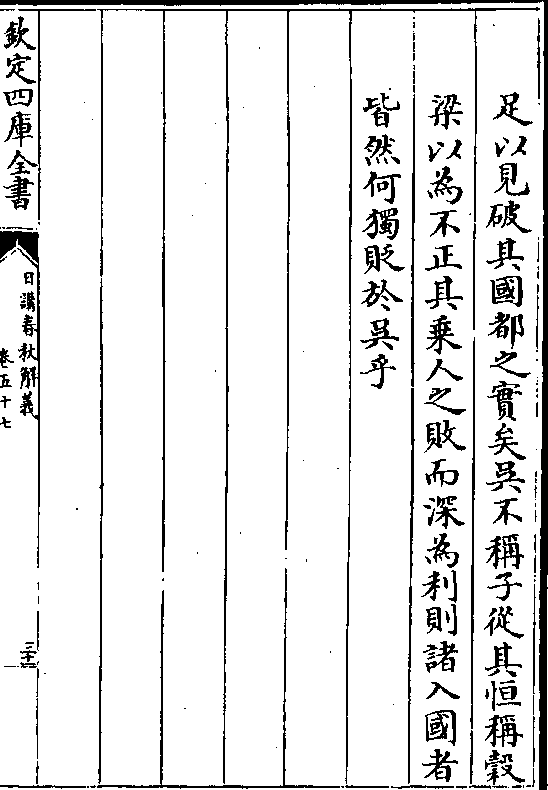 足以見破其國都之實矣吳不稱子從其恒稱穀
梁以為不正其乗人之敗而深為利則諸入國者
皆然何獨貶於吳乎
欽定四庫全書
日講春秋解義
卷五十七